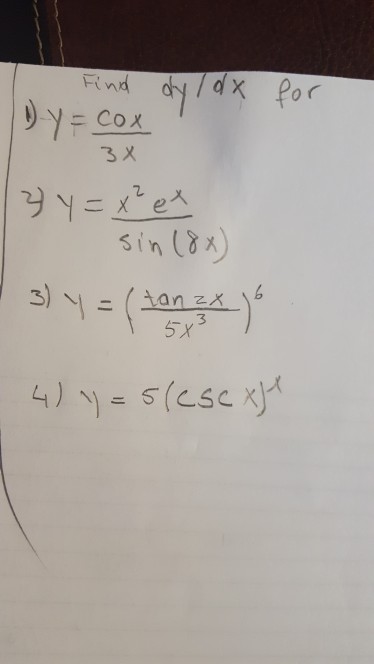 Find dy/dx for
1) y = cox / 3x
2) y = x² eˣ / sin (8x)
3) y = (tan 2x / 5x³)⁶
4) y = 5(csc x)ˣ